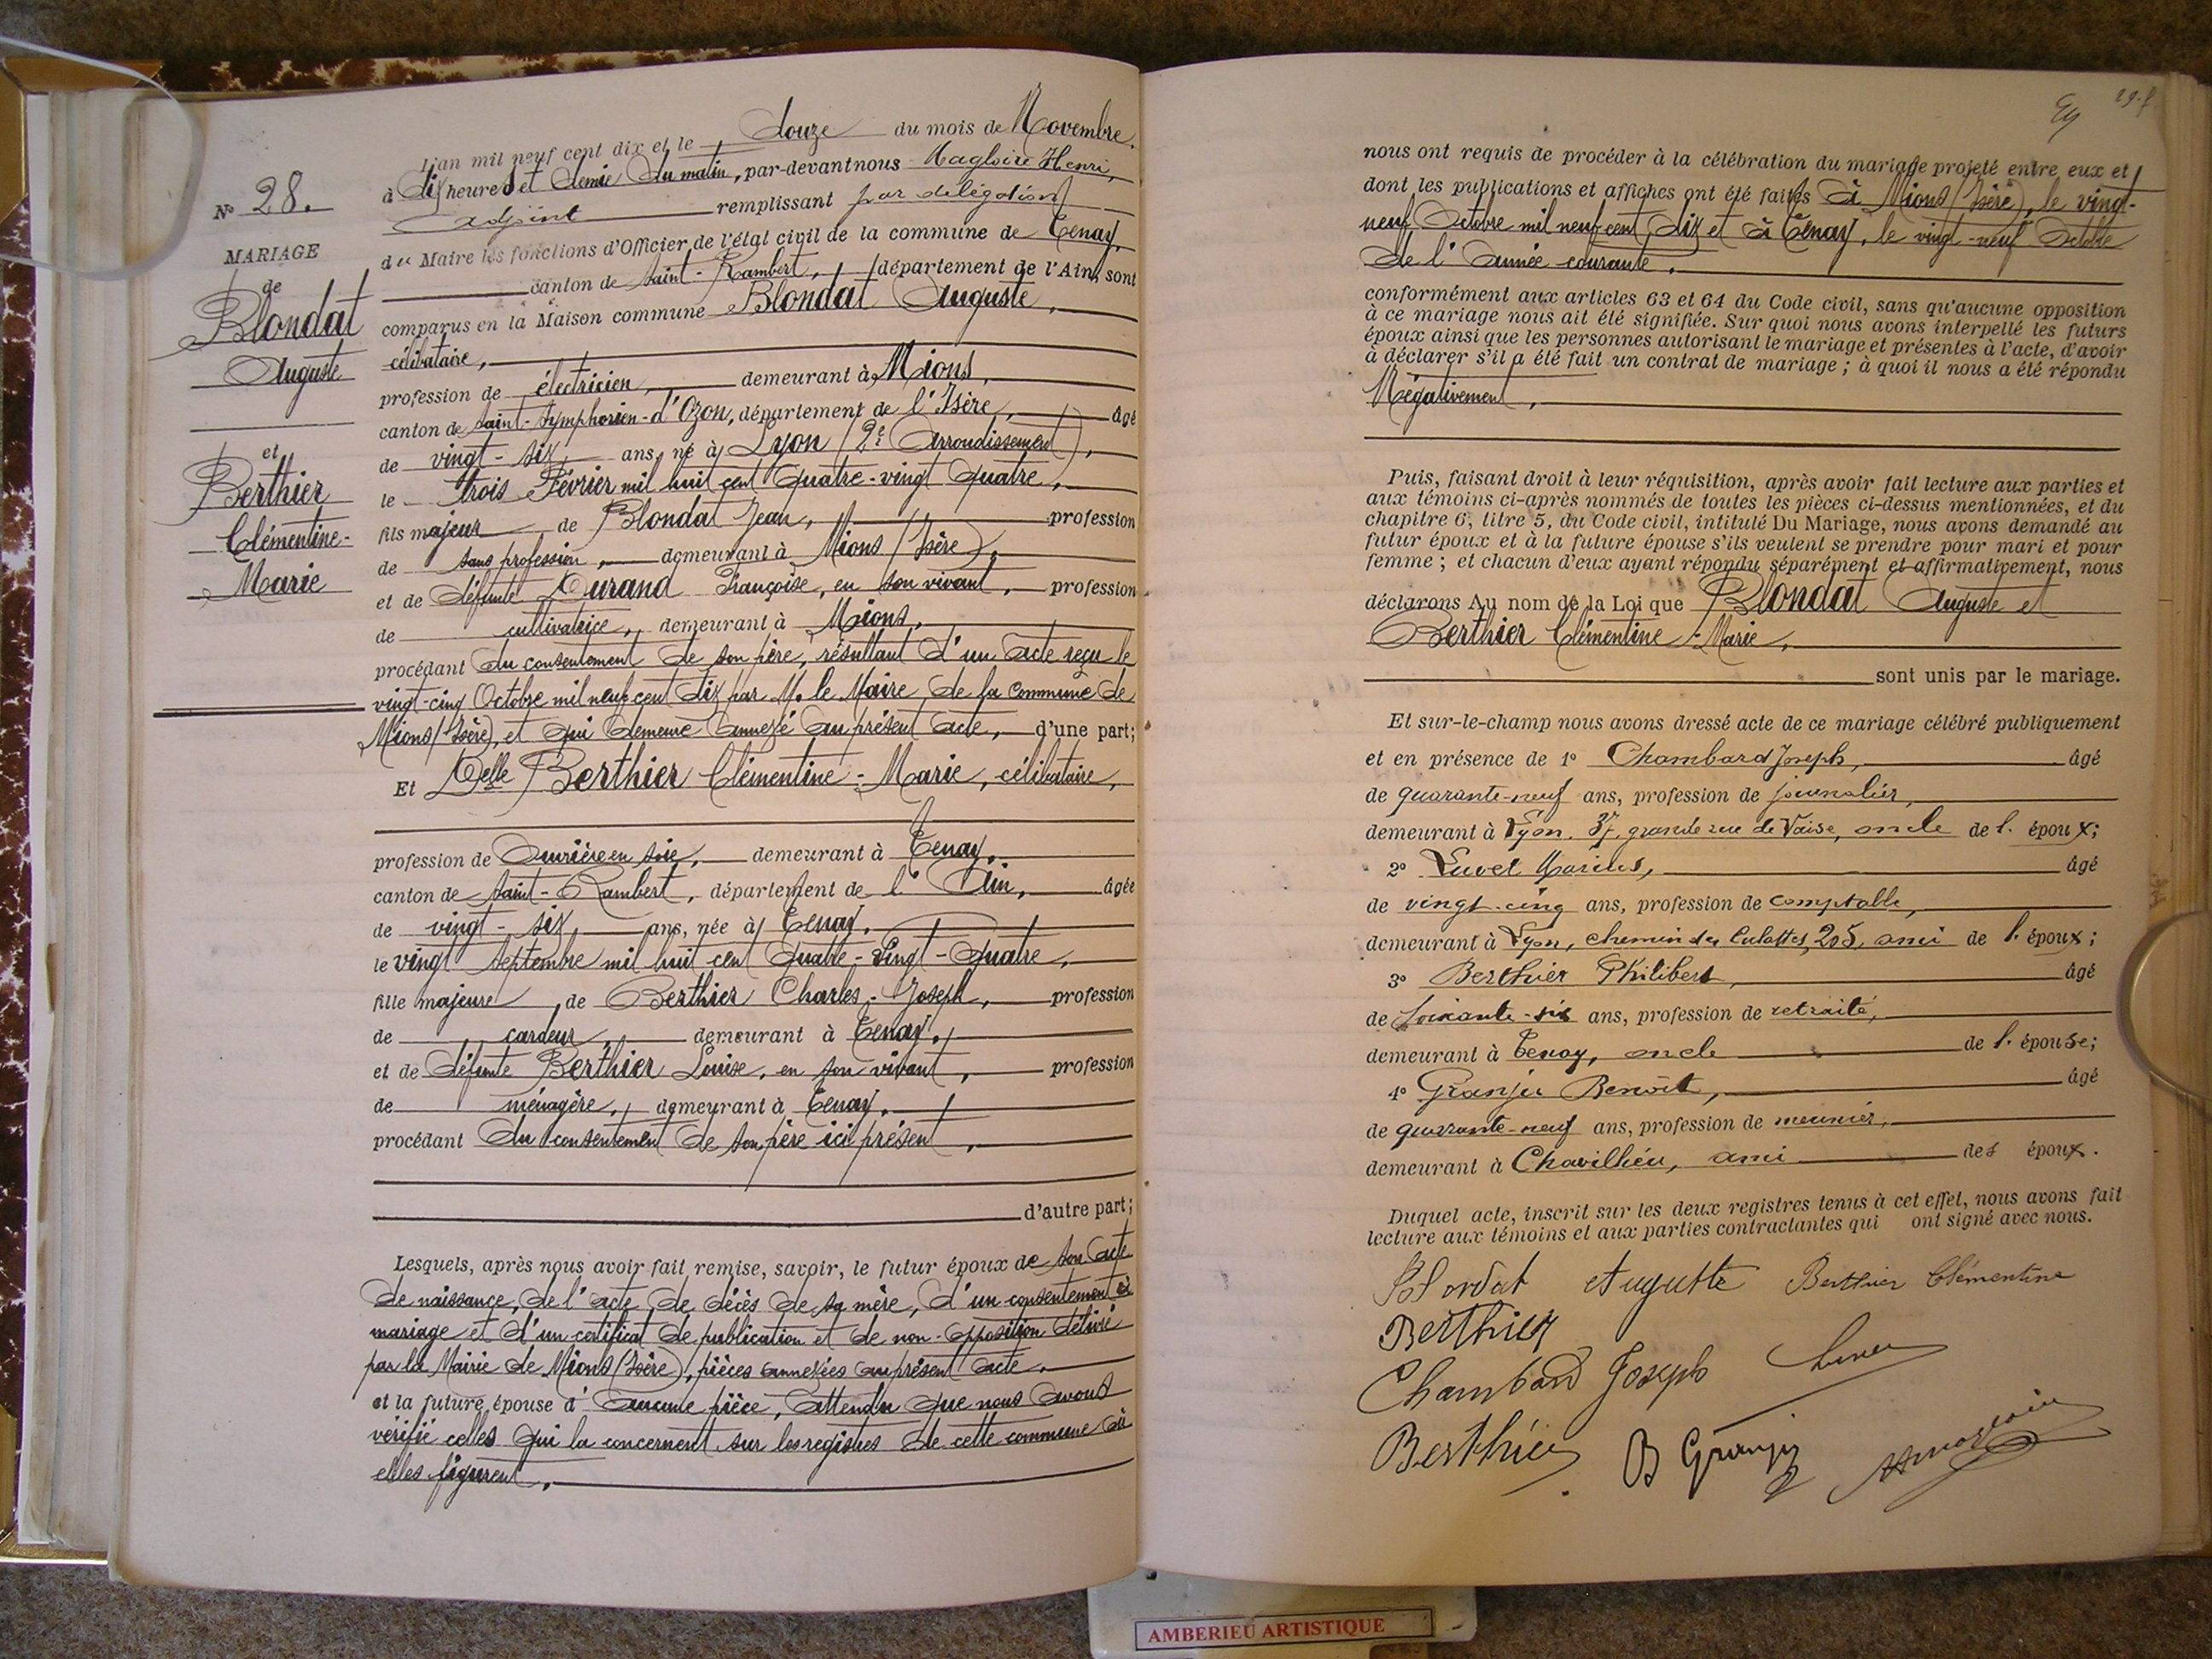 L'an mil neuf cent dix et le douze du mois de Novembre.
à dix heures et demie du matin, par-devant nous Magloire Henri,
adjoint remplissant par délégation
du Maire les fonctions d'Officier de l'état civil de la commune de Tenay,
canton de Saint-Rambert, département de l'Ain, sont
comparus en la Maison commune Blondat Auguste,
célibataire,
profession de électricien, demeurant à Mions,
canton de Saint-Symphorien-d'Ozon, département de l'Isère, âgé
de vingt-six ans, né à Lyon (2e Arrondissement),
le trois Février mil huit cent quatre-vingt quatre,
fils majeur de Blondat Jean, profession
de sans profession, demeurant à Mions (Isère),
et de défunte Durand Françoise, en son vivant, profession
de cultivatrice, demeurant à Mions,
procédant du consentement de son père, résultant d'un acte reçu le
vingt-cinq Octobre mil neuf cent dix par M. le Maire de la commune de
Mions (Isère), et qui demeure annexé au présent acte, d'une part;
Et Delle Berthier Clémentine-Marie, célibataire,
profession de Ouvrière en soie, demeurant à Tenay,
canton de Saint-Rambert, département de l'Ain, âgée
de vingt-six ans, née à Tenay,
le vingt Septembre mil huit cent quatre-vingt-quatre,
fille majeure de Berthier Charles-Joseph, profession
de cardeur, demeurant à Tenay,
et de défunte Berthier Louise, en son vivant, profession
de ménagère, demeurant à Tenay,
procédant du consentement de son père ici présent,
d'autre part;
Lesquels, après nous avoir fait remise, savoir, le futur époux de son acte
de naissance, de l'acte de décès de sa mère, d'un consentement à
mariage et d'un certificat de publication et de non-opposition délivré
par la Mairie de Mions (Isère), pièces annexées au présent acte,
et la future épouse d'aucune pièce, attendu que nous avons
vérifié celles qui la concernent sur les registres de cette commune où
elles figurent,
No 28.
MARIAGE
de
Blondat
Auguste
et
Berthier
Clémentine-
Marie
29.f
nous ont requis de procéder à la célébration du mariage projeté entre eux et
dont les publications et affiches ont été faites à Mions (Isère), le vingt-
neuf Octobre mil neuf cent dix et à Tenay, le vingt-neuf Octobre
de l'année courante,
conformément aux articles 63 et 64 du Code civil, sans qu'aucune opposition
à ce mariage nous ait été signifiée. Sur quoi nous avons interpellé les futurs
époux ainsi que les personnes autorisant le mariage et présentes à l'acte, d'avoir
à déclarer s'il a été fait un contrat de mariage; à quoi il nous a été répondu
Négativement,
Puis, faisant droit à leur réquisition, après avoir fait lecture aux parties et
aux témoins ci-après nommés de toutes les pièces ci-dessus mentionnées, et du
chapitre 6, titre 5, du Code civil, intitulé Du Mariage, nous avons demandé au
futur époux et à la future épouse s'ils veulent se prendre pour mari et pour
femme; et chacun d'eux ayant répondu séparément et affirmativement, nous
déclarons Au nom de la Loi que Blondat Auguste et
Berthier Clémentine-Marie,
sont unis par le mariage.
Et sur-le-champ nous avons dressé acte de ce mariage célébré publiquement
et en présence de 1o Chambard Joseph, âgé
de quarante-neuf ans, profession de journalier,
demeurant à Lyon, 37, grande rue de Vaise, oncle de l. époux;
2o Luvet Marius, âgé
de vingt-cinq ans, profession de comptable,
demeurant à Lyon, chemin des Culattes, 205, ami de l. époux;
3o Berthier Philibert, âgé
de soixante-six ans, profession de retraité,
demeurant à Tenay, oncle de l. épouse;
4o Granju Benoît, âgé
de quarante-neuf ans, profession de meunier,
demeurant à Chavilhieu, ami des époux.
Duquel acte, inscrit sur les deux registres tenus à cet effet, nous avons fait
lecture aux témoins et aux parties contractantes qui ont signé avec nous.
Blondat Auguste Berthier Clémentine
Berthier
Chambard Joseph
Berthier B Granju
AMBERIEU ARTISTIQUE